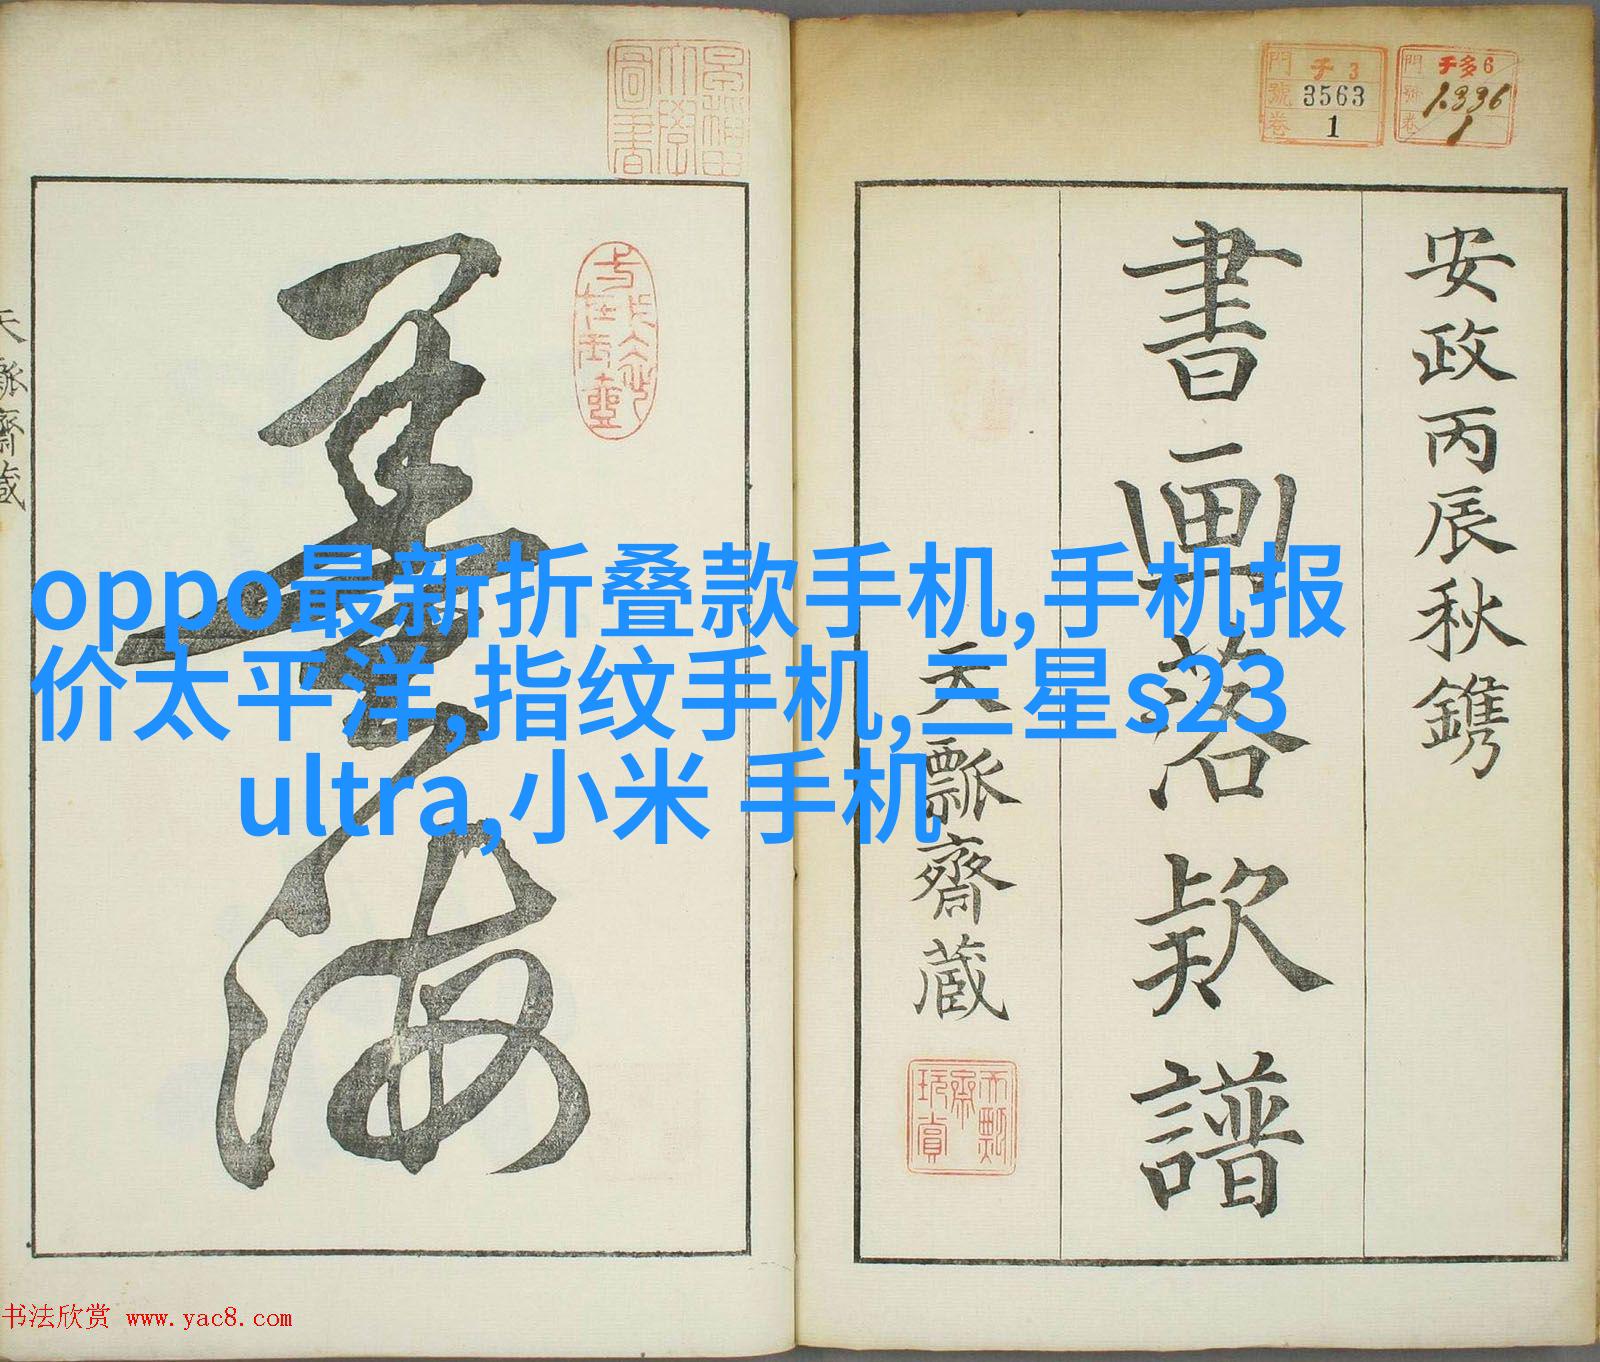 門 チ 3
號 3563
卷 1
門 6
號 1336
卷 1
安政丙辰秋鐫
書画落欵譜
天瓢齋蔵
天瓢齋玩賞
墨海
天瓢齋蔵
oppo最新折叠款手机,手机报
价太平洋,指纹手机,三星s23
ultra,小米 手机
书法欣赏 www.yac8.com